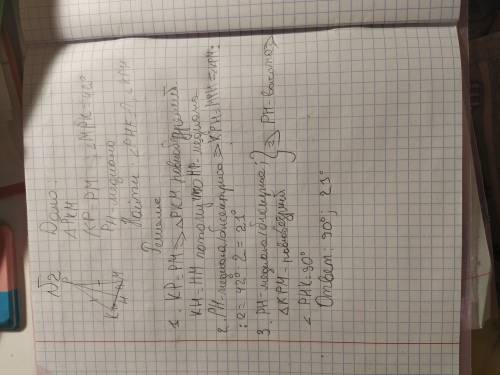 №2
Дано:
△PKM
KP=PM, ∠MPK=42°
PH-медиана
Найти ∠PHK-?, ∠KPH
P
K H M
Решение
1. KP=PM => △PKM равнобедренный
KH=HM потому что HP-медиана
2. PH-медиана, биссектриса => KPH=MPH=
:2=42°:2=21°
3. PH-медиана, биссектриса;
△KPM-равнобедрий => PH-высота =>
∠PHK=90°
Ответ: 90°; 21°